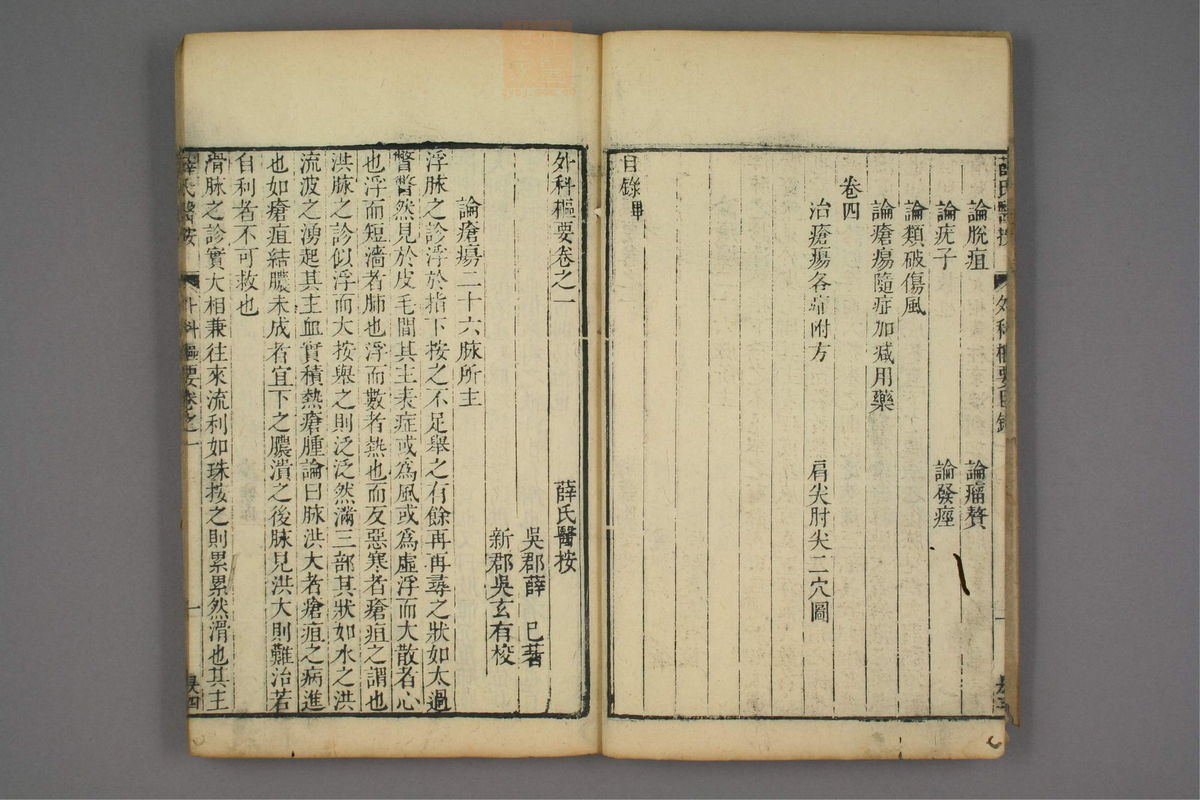 薛氏醫按
外科樞要目錄
一
論脫疽
論瘤贅
論疣子
論發痙
論類破傷風
論瘡瘍隨症加減用藥
卷四
治瘡瘍各症附方
肩尖肘尖二穴圖
目錄畢
外科樞要卷之一
薛氏醫按
吳郡薛 已著
新郡吳玄有校
論瘡瘍二十六脉所主
浮脉之診浮於指下按之不足舉之有餘再再尋之狀如太過
瞥瞥然見於皮毛間其主表症或為風或為虛浮而大散者心
也浮而短濇者肺也浮而數者熱也而反惡寒者瘡疽之謂也
洪脉之診似浮而大按舉之則泛泛然滿三部其狀如水之洪
流波之湧起其主血實積熱瘡腫論曰脉洪大者瘡疽之病進
也如瘡疽結膿未成者宜下之膿潰之後脉見洪大則難治若
自利者不可救也
滑脉之診實大相兼往來流利如珠按之則累累然滑也其主
薛氏醫按
外科樞要卷之一
一